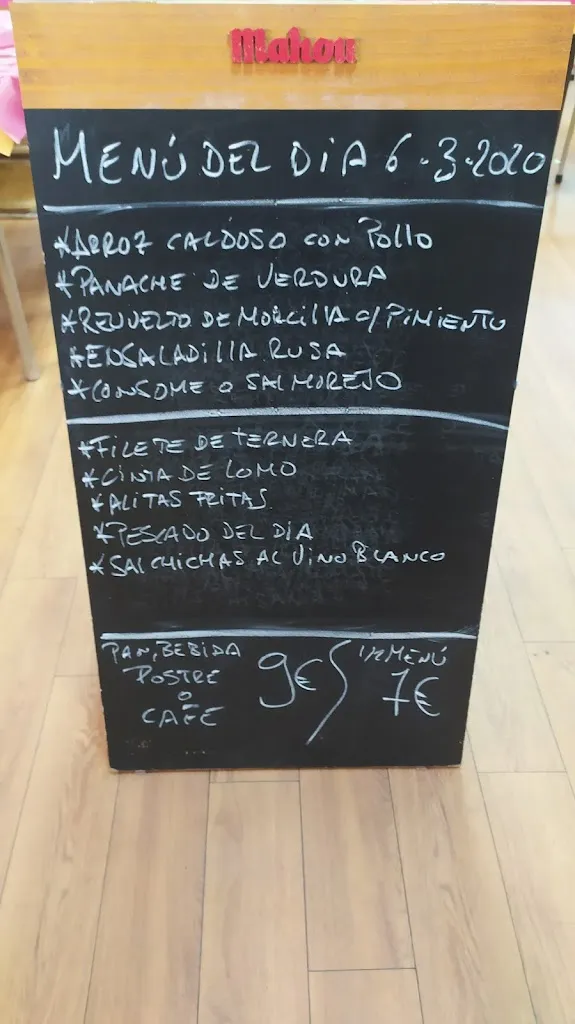 Mahou
MENÚ DEL DIA 6-3-2020
*ARROZ CALDOSO CON POLLO
*PANACHE DE VERDURA
*REVUELTO DE MORCILLA C/PIMIENTO
*ENSALADILLA RUSA
*CONSOME O SALMOREJO
*FILETE DE TERNERA
*CINTA DE LOMO
*ALITAS FRITAS
*PESCADO DEL DIA
*SALCHICHAS AL VINO BLANCO
PAN, BEBIDA
POSTRE
O
CAFE
9€
1/2 MENÚ
7€